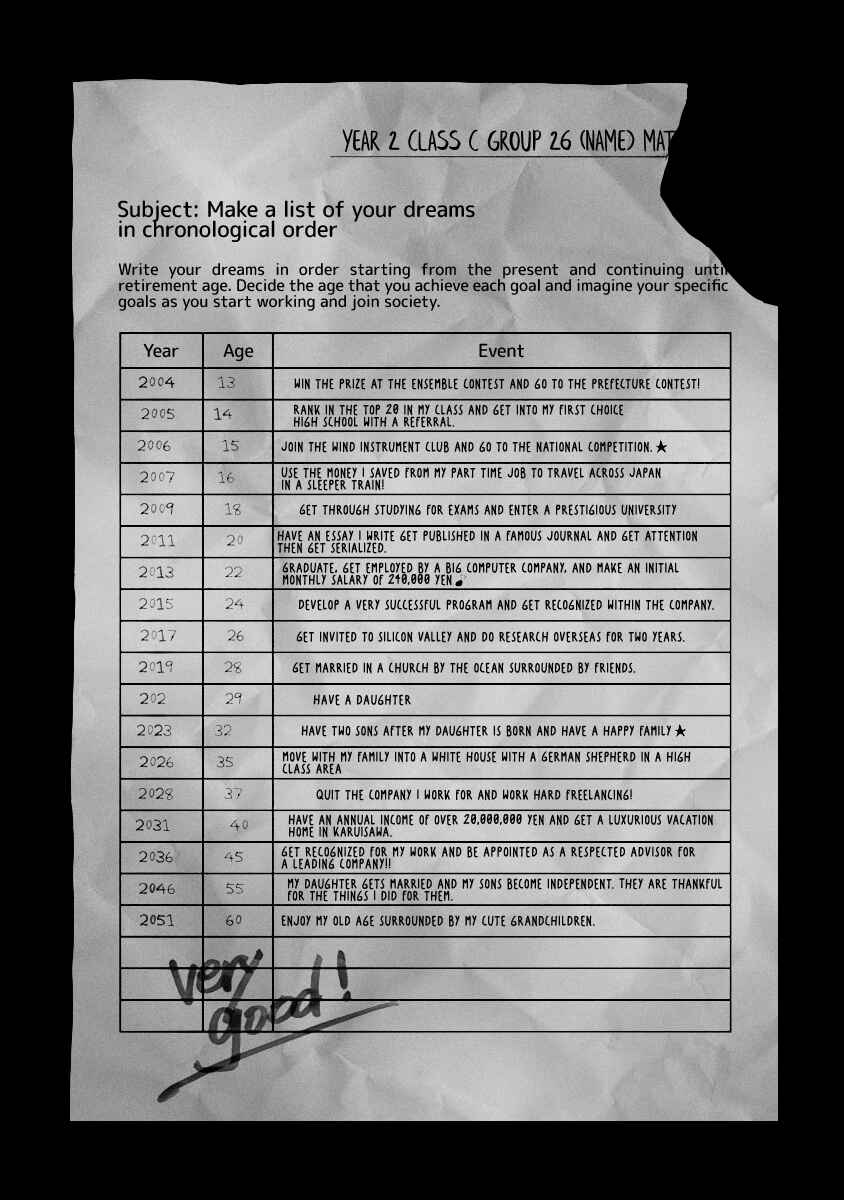 YEAR 2 CLASS C GROUP 26 (NAME) MAT
Subject: Make a list of your dreams
in chronological order
Write your dreams in order starting from the present and continuing until
retirement age. Decide the age that you achieve each goal and imagine your specific
goals as you start working and join society.
Year Age Event
2004 13 WIN THE PRIZE AT THE ENSEMBLE CONTEST AND GO TO THE PREFECTURE CONTEST!
2005 14 RANK IN THE TOP 20 IN MY CLASS AND GET INTO MY FIRST CHOICE
HIGH SCHOOL WITH A REFERRAL.
2006 15 JOIN THE WIND INSTRUMENT CLUB AND GO TO THE NATIONAL COMPETITION. ★
2007 16 USE THE MONEY I SAVED FROM MY PART TIME JOB TO TRAVEL ACROSS JAPAN
IN A SLEEPER TRAIN!
2009 18 GET THROUGH STUDYING FOR EXAMS AND ENTER A PRESTIGIOUS UNIVERSITY
2011 20 HAVE AN ESSAY I WRITE GET PUBLISHED IN A FAMOUS JOURNAL AND GET ATTENTION
THEN GET SERIALIZED.
2013 22 GRADUATE, GET EMPLOYED BY A BIG COMPUTER COMPANY, AND MAKE AN INITIAL
MONTHLY SALARY OF 240,000 YEN
2015 24 DEVELOP A VERY SUCCESSFUL PROGRAM AND GET RECOGNIZED WITHIN THE COMPANY.
2017 26 GET INVITED TO SILICON VALLEY AND DO RESEARCH OVERSEAS FOR TWO YEARS.
2019 28 GET MARRIED IN A CHURCH BY THE OCEAN SURROUNDED BY FRIENDS.
202 29 HAVE A DAUGHTER
2023 32 HAVE TWO SONS AFTER MY DAUGHTER IS BORN AND HAVE A HAPPY FAMILY ★
2026 35 MOVE WITH MY FAMILY INTO A WHITE HOUSE WITH A GERMAN SHEPHERD IN A HIGH
CLASS AREA
2028 37 QUIT THE COMPANY I WORK FOR AND WORK HARD FREELANCING!
2031 40 HAVE AN ANNUAL INCOME OF OVER 20,000,000 YEN AND GET A LUXURIOUS VACATION
HOME IN KARUISAWA.
2036 45 GET RECOGNIZED FOR MY WORK AND BE APPOINTED AS A RESPECTED ADVISOR FOR
A LEADING COMPANY!!
2046 55 MY DAUGHTER GETS MARRIED AND MY SONS BECOME INDEPENDENT. THEY ARE THANKFUL
FOR THE THINGS I DID FOR THEM.
2051 60 ENJOY MY OLD AGE SURROUNDED BY MY CUTE GRANDCHILDREN.
very
good!